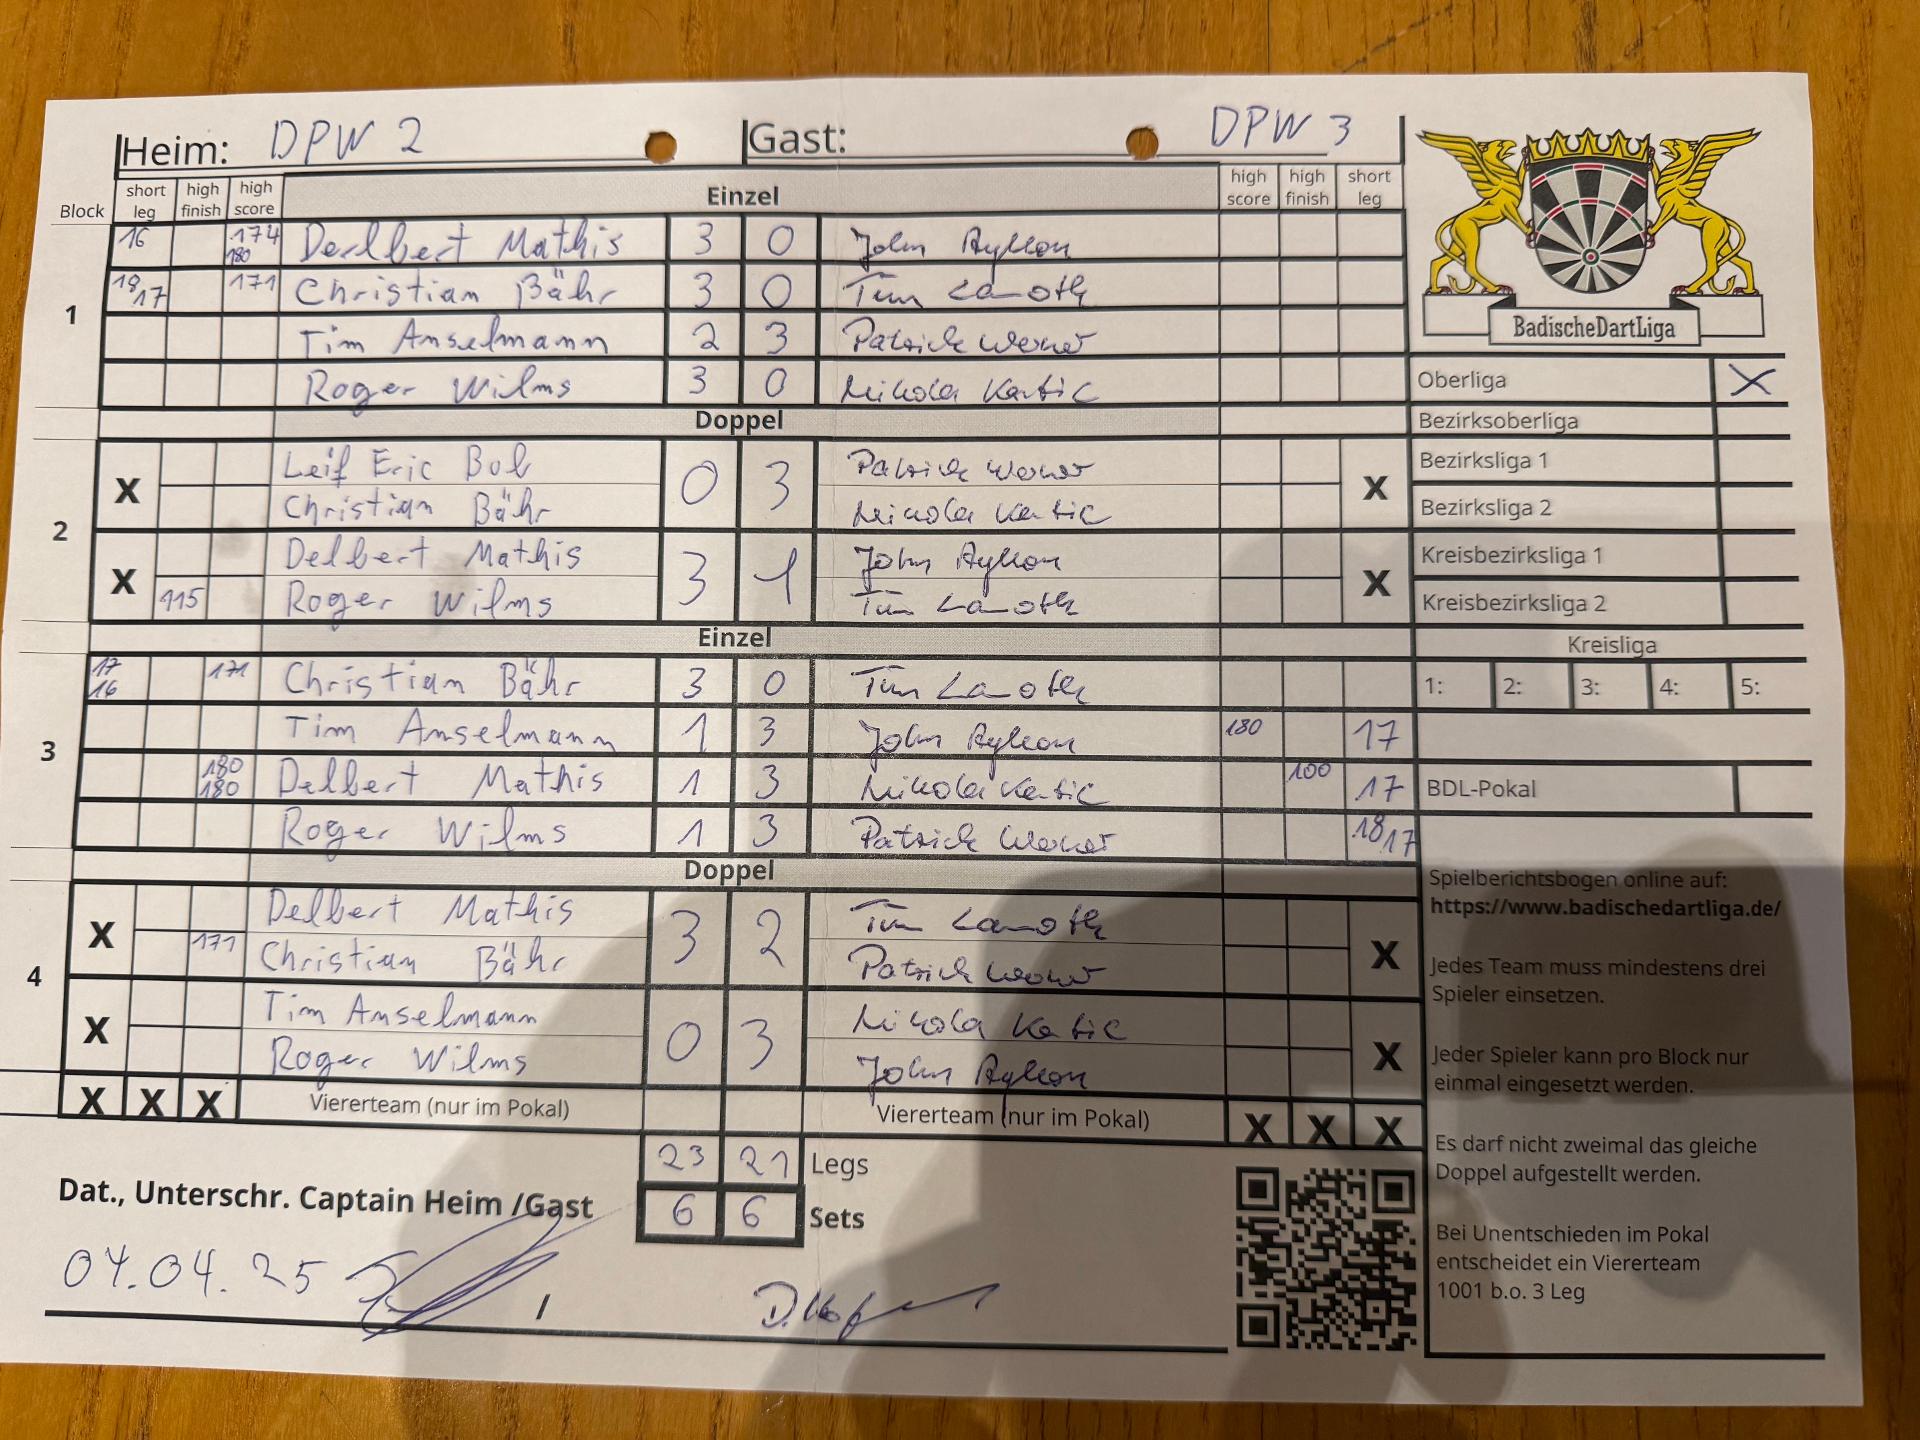 Heim: DPW 2 Gast: DPW 3
Block short leg high finish high score Einzel high score high finish short leg
1
16 174 180 Derlbert Mathis 3 0 John Aykon
18 17 171 Christian Bähr 3 0 Tim Lamoth
Tim Anselmann 2 3 Patrick Werner
Roger Wilms 3 0 Nikola Kartic
Doppel
2
X Leif Eric Bob 0 3 Patrick Werner X
Christian Bähr Nikola Kartic
X Delbert Mathis 3 1 John Aykon X
115 Roger Wilms Tim Lamoth
Einzel
3
17 16 171 Christian Bähr 3 0 Tim Lamoth
Tim Anselmann 1 3 John Aykon 180 17
180 180 Delbert Mathis 1 3 Nikola Kartic 100 17
Roger Wilms 1 3 Patrick Werner 18 17
Doppel
4
X Delbert Mathis 3 2 Tim Lamoth X
171 Christian Bähr Patrick Werner
X Tim Anselmann 0 3 Nikola Katic X
Roger Wilms John Aykon
X X X Viererteam (nur im Pokal) Viererteam (nur im Pokal) X X X
23 21 Legs
6 6 Sets
Dat., Unterschr. Captain Heim /Gast
04.04.25 /
BadischeDartLiga
Oberliga X
Bezirksoberliga
Bezirksliga 1
Bezirksliga 2
Kreisbezirksliga 1
Kreisbezirksliga 2
Kreisliga
1: 2: 3: 4: 5:
BDL-Pokal
Spielberichtsbogen online auf:
https://www.badischedartliga.de/
Jedes Team muss mindestens drei
Spieler einsetzen.
Jeder Spieler kann pro Block nur
einmal eingesetzt werden.
Es darf nicht zweimal das gleiche
Doppel aufgestellt werden.
Bei Unentschieden im Pokal
entscheidet ein Viererteam
1001 b.o. 3 Leg